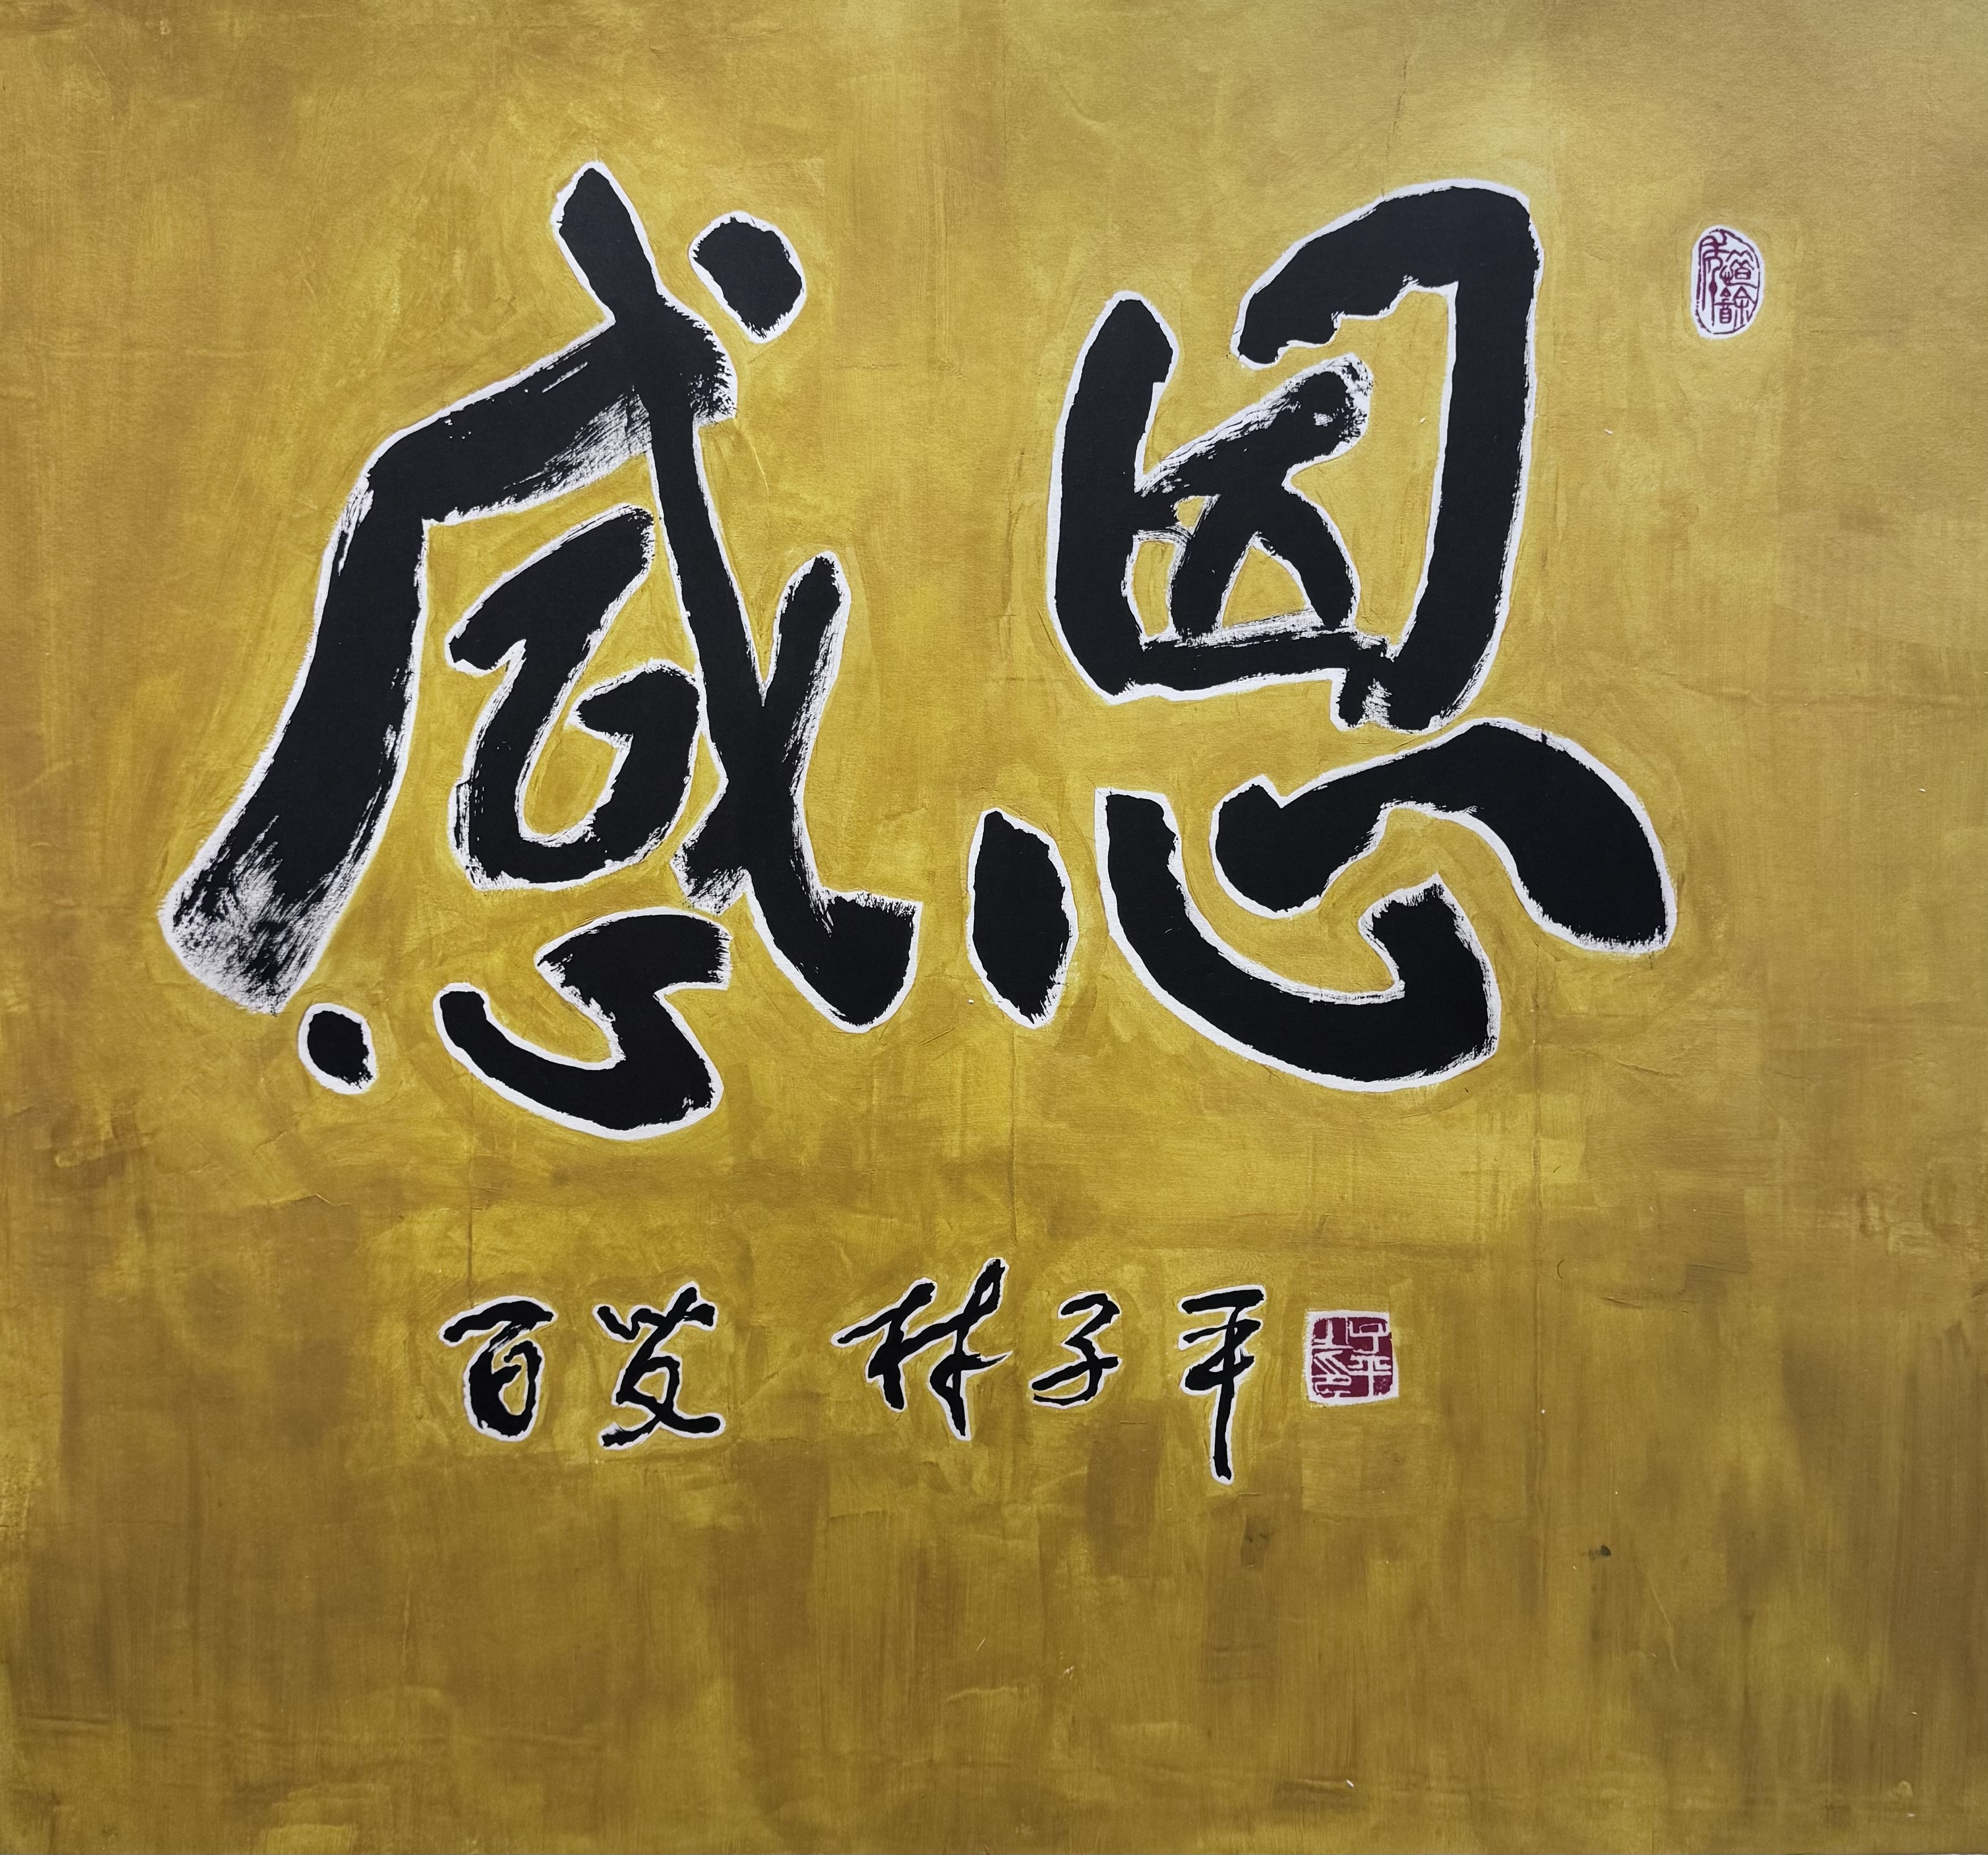 感恩
百叟 林子平